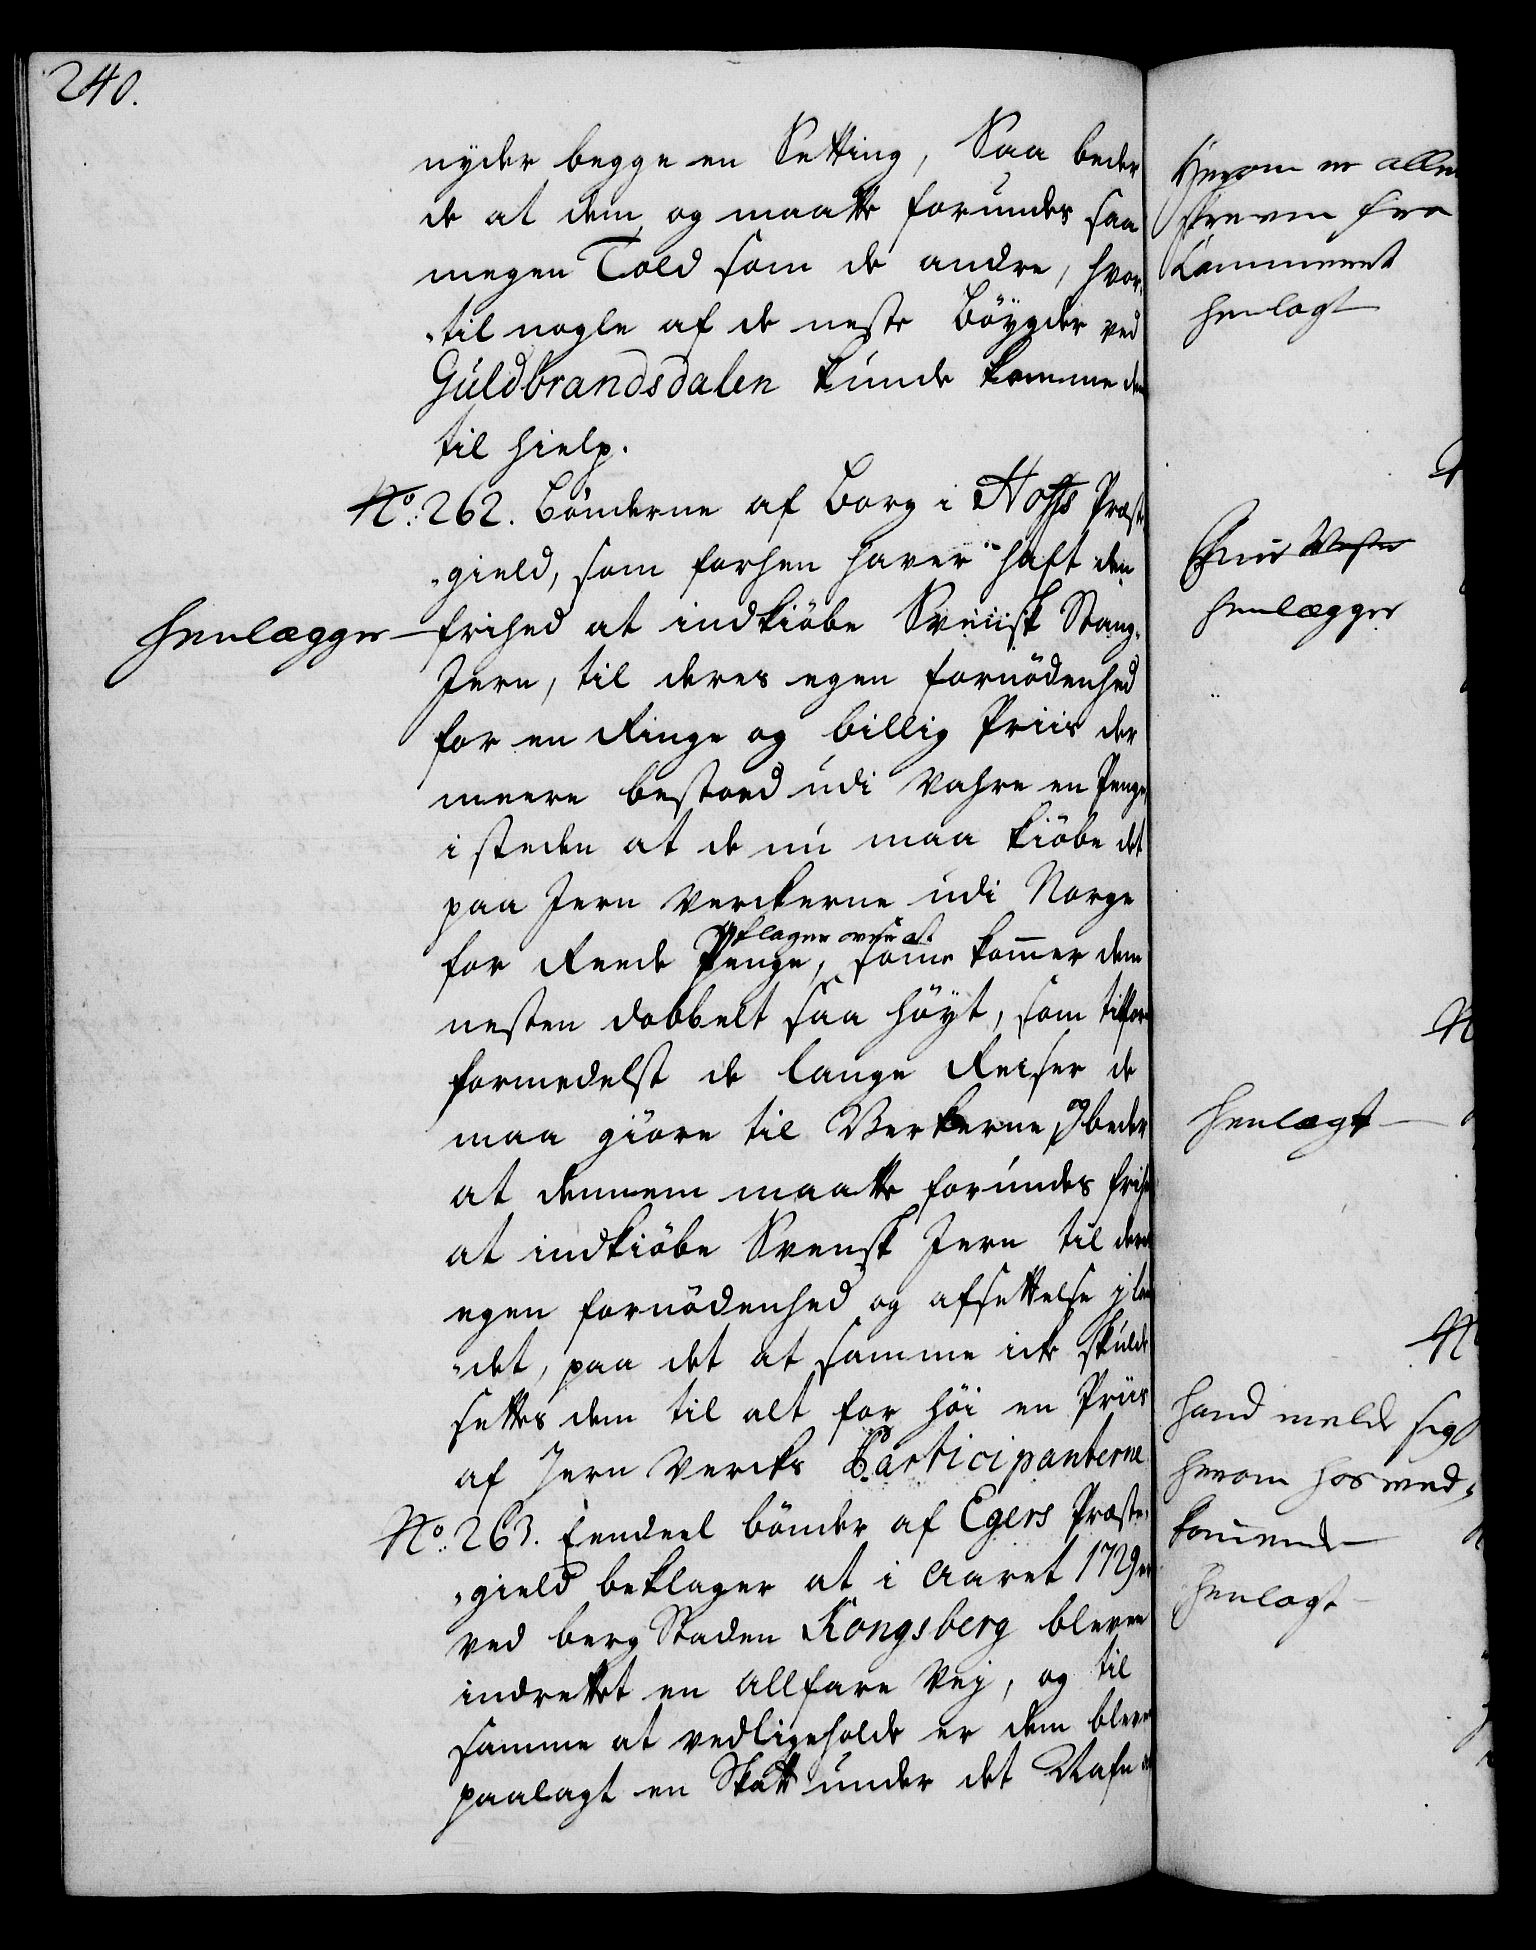 240.
nyder begge en Setting, Saa beder
de at dem og maatte forundes saa
megen Told som de andre, hvor,
-til nogle af de neste Böygder ved
Guldbrandsdalen kunde komme dem
til hielp.
No: 262. Bönderne af Borg i Hoffs Præste
-gield, som forhen haver haft den
henlægges
frihed at indkiöbe Sveiisk Stang-
Jern, til deres egen fornödenhed
for en Ringe og billig Priis der
meere bestoed udi Vahre en Penge
i steden at de nu maa kiöbe det
paa Jern Verckerne udi Norge
klager over at
for Reede Penge, som kommer dem
nesten dobbelt saa höyt, som tilfor
formedelst de lange Reiser de
maa giöre til Verkerne, og beder
at dennem maatte forundes frihed
at indkiöbe Svensk Jern til deres
egen fornödenhed og afsettelse j lan
-det, paa det at samme icke skulde
settes dem til alt for höi en Priis
af Jern Vercks Participanterne
No: 263. Eendeel bönder af Egers Præste,
-gield beklager at i Aaret 1729 er
ved berg Staden Kongsberg bleven
indrettet en Allfare Vej, og til
samme at vedligeholde er dem bleven
paalagt en Skatt under det Nafn
Herom er alle
skreven fra
Cammeret
henlagt
henlægges
henlagt
hand melde sig
herom hos ved,
kommende
henlagt